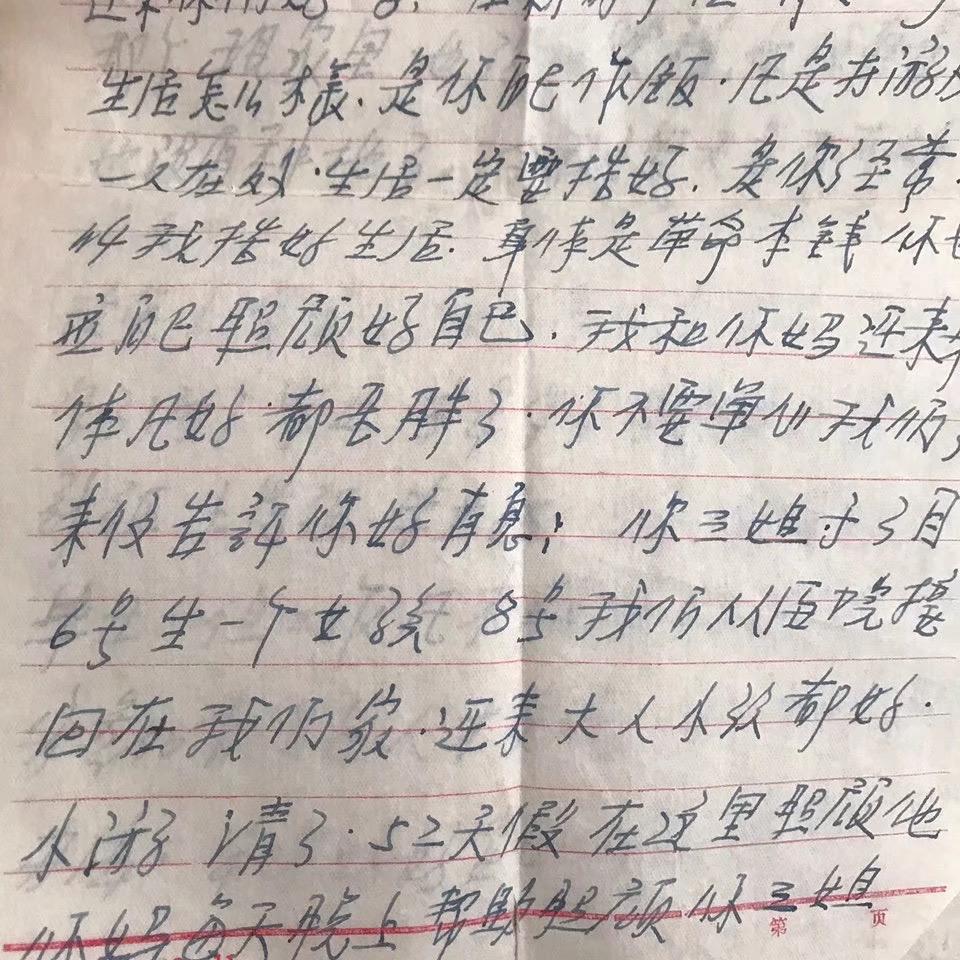 生活怎么樣.是你自己作飯.
一人在外.生活一定要搞好.是你經常
叫我搞好生活.身体是革命本錢 你也
应自己照顾好自己.我和你妈近来身
体凡好 都長胖了.你不要单心我们,
来仅告許你好肖息; 你三姐于3月
6号生一个女孩 8号我们从医院接
回在我们家.近来大人小孩都好.
小游 请了.52天假 在这里照顾他
你妈每天晚上帮助照顾你三姐
第 页